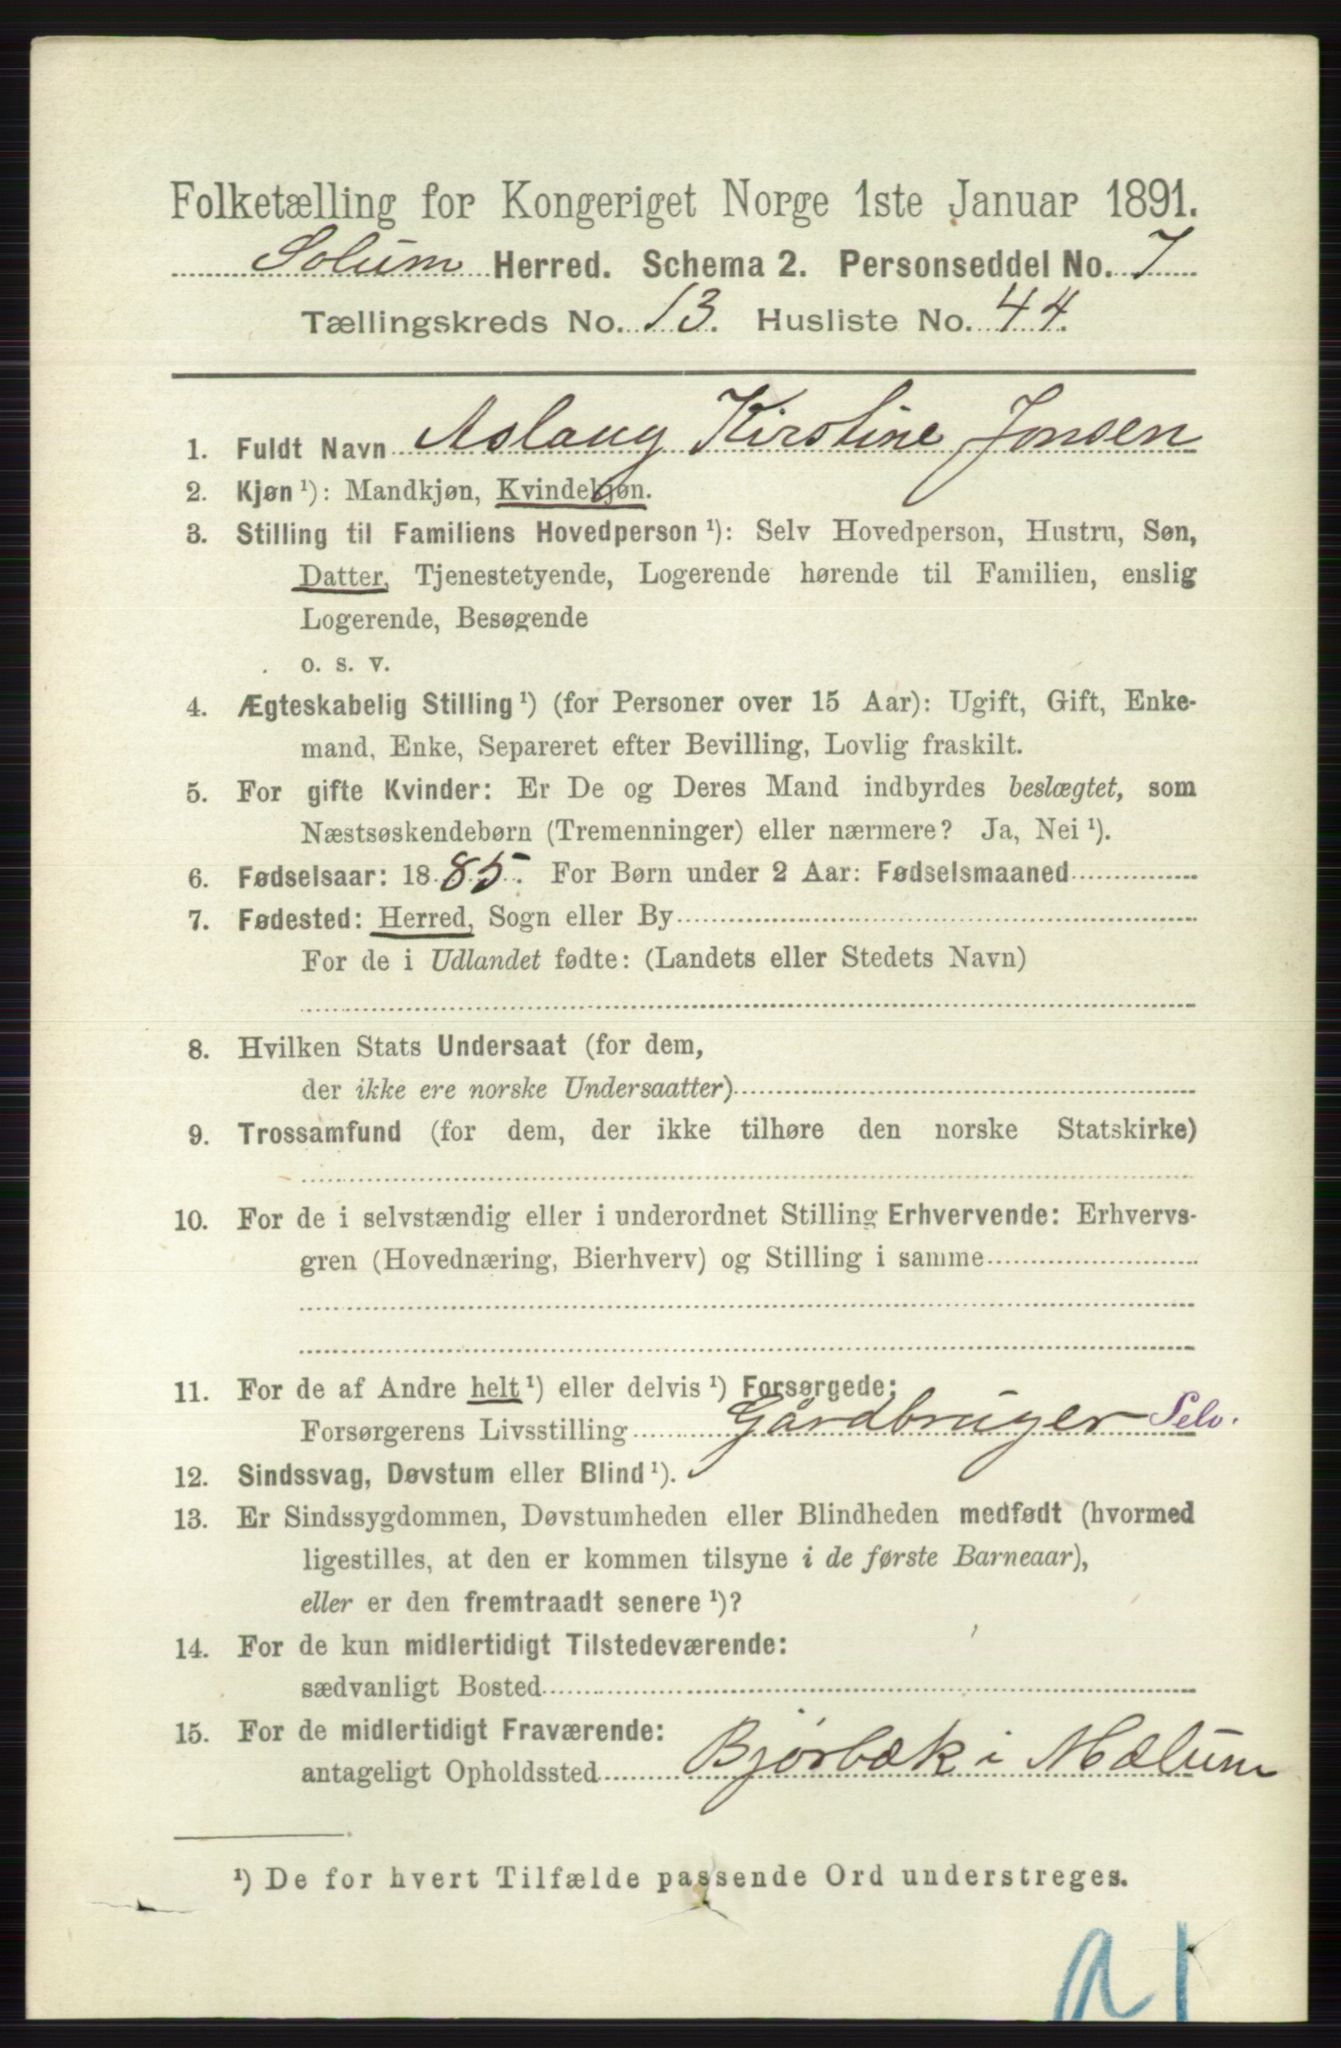 Folketælling for Kongeriget Norge 1ste Januar 1891.
Solum Herred. Schema 2. Personseddel No. 7
Tællingskreds No. 13. Husliste No. 44.
1. Fuldt Navn Aslaug Kirstine Jonsen
2. Kjøn ¹): Mandkjøn, Kvindekjøn.
3. Stilling til Familiens Hovedperson ¹): Selv Hovedperson, Hustru, Søn,
Datter, Tjenestetyende, Logerende hørende til Familien, enslig
Logerende, Besøgende
o. s. v.
4. Ægteskabelig Stilling ¹) (for Personer over 15 Aar): Ugift, Gift, Enke-
mand, Enke, Separeret efter Bevilling, Lovlig fraskilt.
5. For gifte Kvinder: Er De og Deres Mand indbyrdes beslægtet, som
Næstsøskendebørn (Tremenninger) eller nærmere? Ja, Nei ¹).
6. Fødselsaar: 1885. For Børn under 2 Aar: Fødselsmaaned
7. Fødested: Herred, Sogn eller By
For de i Udlandet fødte: (Landets eller Stedets Navn)
8. Hvilken Stats Undersaat (for dem,
der ikke ere norske Undersaatter)
9. Trossamfund (for dem, der ikke tilhøre den norske Statskirke)
10. For de i selvstændig eller i underordnet Stilling Erhvervende: Erhvervs-
gren (Hovednæring, Bierhverv) og Stilling i samme
11. For de af Andre helt ¹) eller delvis ¹) Forsørgede:
Forsørgerens Livsstilling Gårdbruger Selv.
12. Sindssvag, Døvstum eller Blind ¹).
13. Er Sindssygdommen, Døvstumheden eller Blindheden medfødt (hvormed
ligestilles, at den er kommen tilsyne i de første Barneaar),
eller er den fremtraadt senere ¹)?
14. For de kun midlertidigt Tilstedeværende:
sædvanligt Bosted
15. For de midlertidigt Fraværende:
antageligt Opholdssted Bjørbæk i Mælum
¹) De for hvert Tilfælde passende Ord understreges.